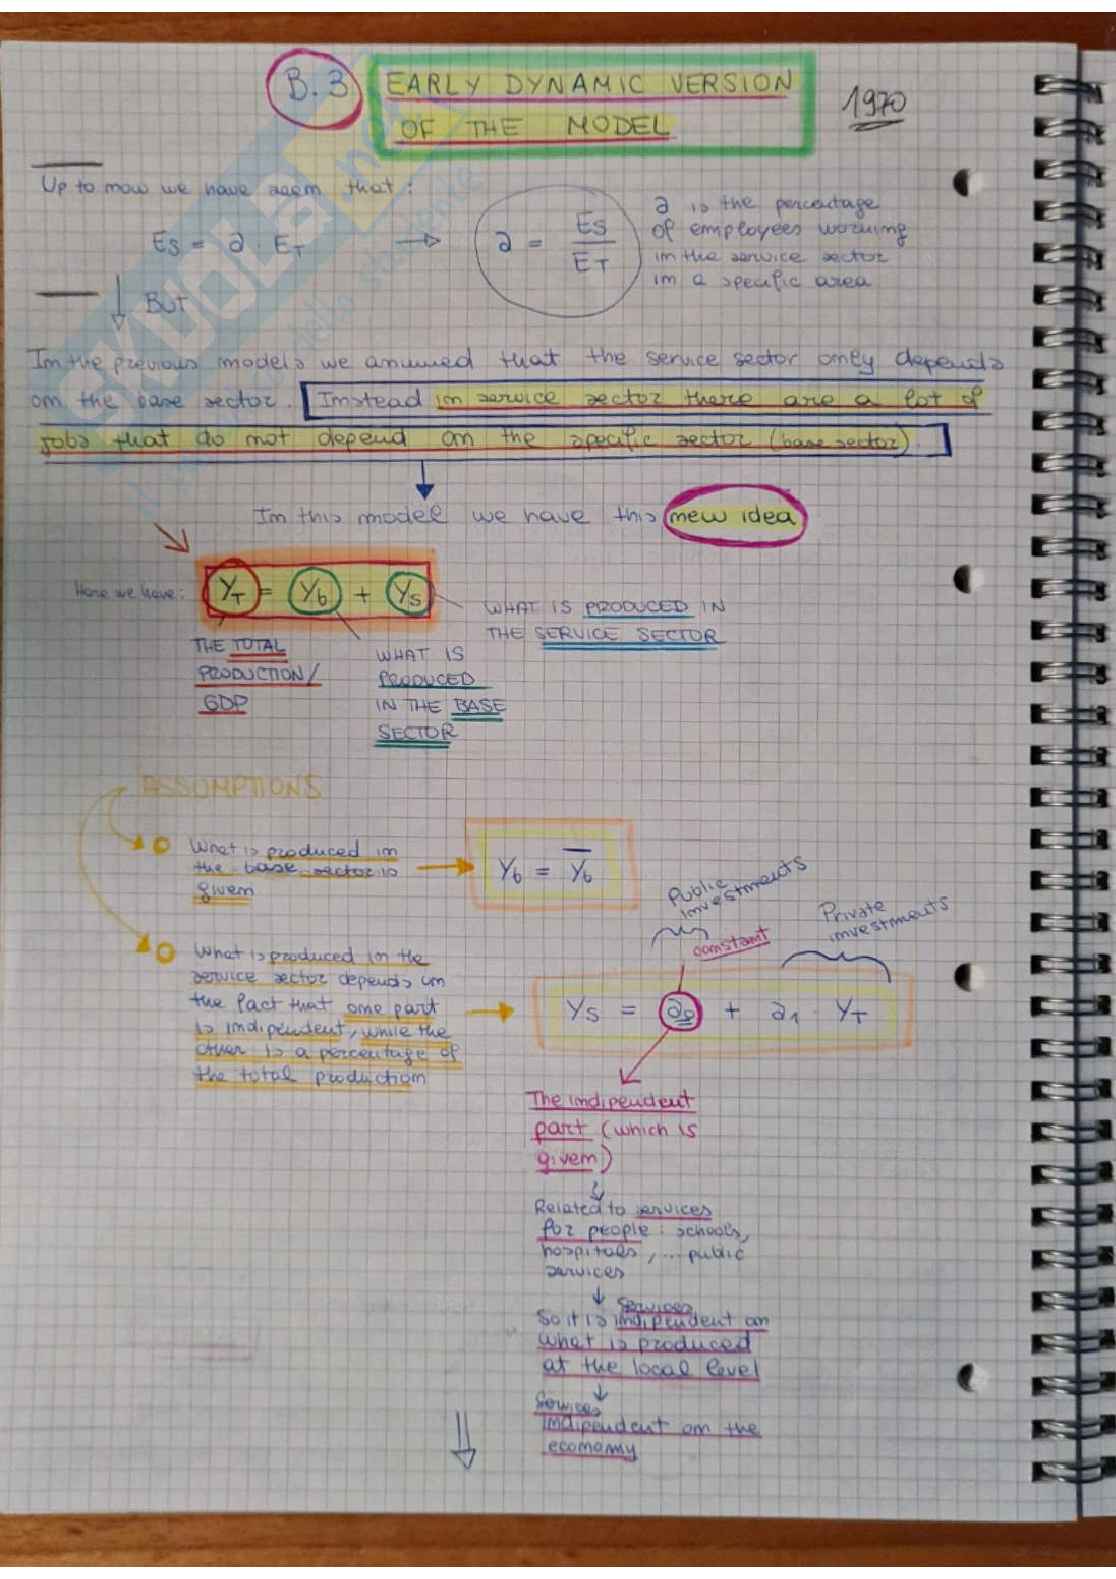 B.3 EARLY DYNAMIC VERSION
OF THE MODEL
1970
Up to now we have seen that:
Es = a · ET → a = Es / ET
a is the percentage
of employees working
in the service sector
in a specific area
BUT
In the previous models we assumed that the service sector only depends
on the base sector. Instead in service sector there are a lot of
jobs that do not depend on the specific sector (base sector)
In this model we have this new idea
Here we have: YT = Yb + Ys
WHAT IS PRODUCED IN
THE SERVICE SECTOR
THE TOTAL
PRODUCTION/
GDP
WHAT IS
PRODUCED
IN THE BASE
SECTOR
ASSUMPTIONS
What is produced in
the base sector is
given
Yb = Y̅b
Public
investments
Private
investments
constant
What is produced in the
service sector depends on
the fact that one part
is indipendent, while the
other is a percentage of
the total production
Ys = a0 + a1 · YT
The indipendent
part (which is
given)
Related to services
for people: schools,
hospitals, ... public
services
Services
So it is indipendent on
what is produced
at the local level
Services
indipendent on the
economy